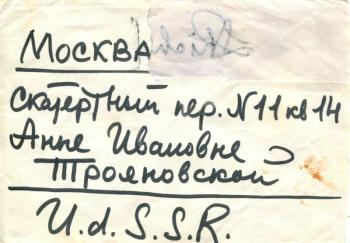 Москва
Скатертный пер. N11 кв 14
Анне Ивановне
Трояновской
U.d.S.S.R.